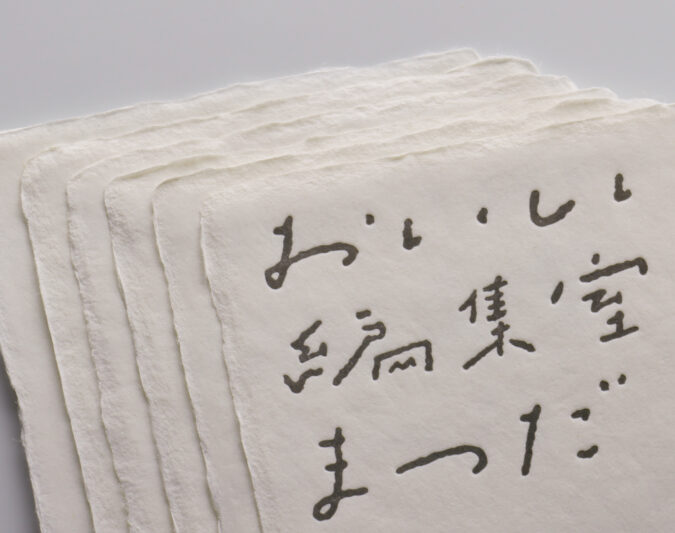 おいしい
編集室
まつだ